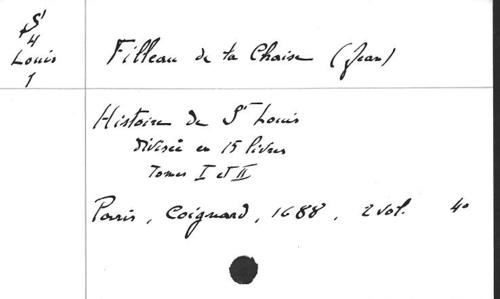 S^t
4
Louis
1
Filleau de la Chaise (Jean)
Histoire de S^t Louis
divisée en 15 livres
Tomes I et II
Paris, Coignard, 1688, 2 vol. 4°